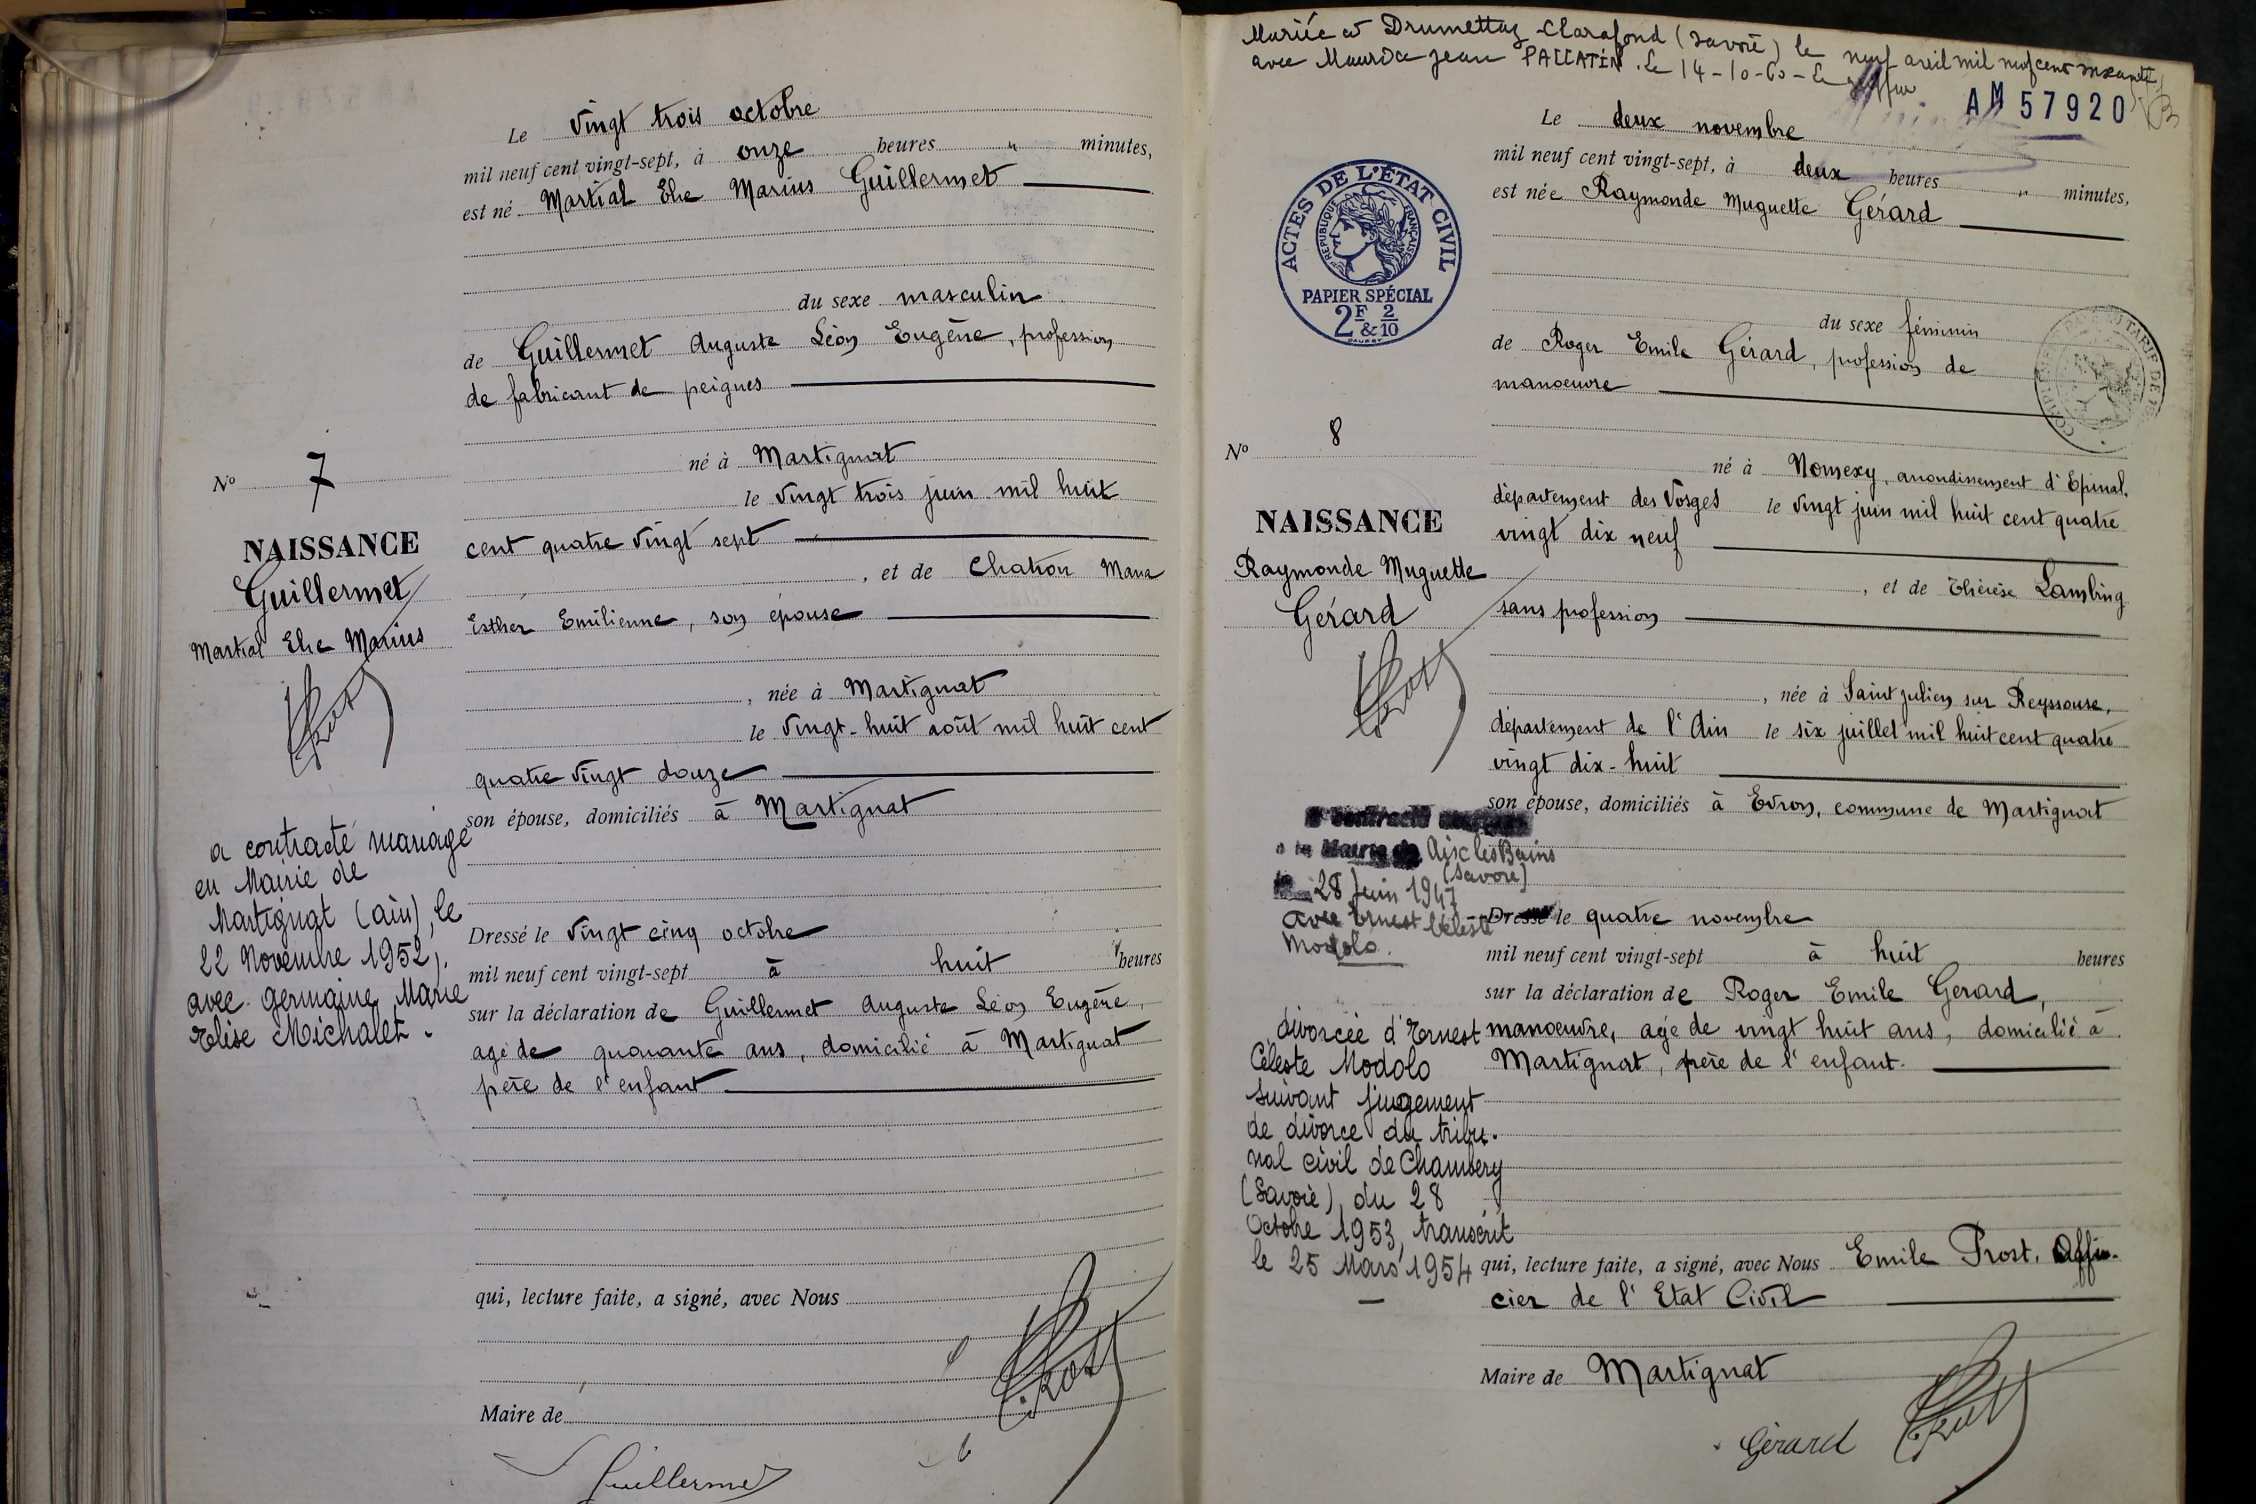 Le vingt trois octobre
mil neuf cent vingt-sept, à onze heures " minutes,
est né Martial Elie Marius Guillermet
du sexe masculin
de Guillermet Auguste Léon Eugène, profession
de fabricant de peignes
né à Martignat
le vingt trois juin mil huit
cent quatre vingt sept
, et de Chatron Maria
Esther Emilienne, son épouse
, née à Martignat
le vingt-huit août mil huit cent
quatre vingt douze
son épouse, domiciliés à Martignat
Dressé le vingt cinq octobre
mil neuf cent vingt-sept à huit heures
sur la déclaration de Guillermet Auguste Léon Eugène,
agé de quarante ans, domicilié à Martignat
père de l'enfant
qui, lecture faite, a signé, avec Nous
Maire de
E. Prost
Guillermet
No 7
NAISSANCE
Guillermet
Martial Elie Marius
E. Prost
a contracté mariage
en Mairie de
Martignat (ain), le
22 Novembre 1952,
avec Germaine Marie
Elise Michalet.
Mariée à Drumettaz-Clarafond (Savoie) le neuf avril mil neuf cent soixante
avec Maurice Jean PALLATIN. Le 14-10-60-Le
AM 57920
ACTES DE L'ÉTAT CIVIL
RÉPUBLIQUE FRANÇAISE
PAPIER SPÉCIAL
2F & 2/10
Le deux novembre
mil neuf cent vingt-sept, à deux heures " minutes,
est née Raymonde Muguette Gérard
du sexe féminin
de Roger Emile Gérard, profession de
manoeuvre
né à Nomexy, arrondissement d'Epinal,
département des Vosges le vingt juin mil huit cent quatre
vingt dix neuf
, et de Thérèse Lambing
sans profession
, née à Saint julien sur Reyssouse,
département de l'Ain le six juillet mil huit cent quatre
vingt dix-huit
son épouse, domiciliés à Evron, commune de Martignat
Dressé le quatre novembre
mil neuf cent vingt-sept à huit heures
sur la déclaration de Roger Emile Gerard,
manoeuvre, agé de vingt huit ans, domicilié à
Martignat, père de l'enfant.
qui, lecture faite, a signé, avec Nous Emile Prost, Offi-
cier de l'Etat Civil
Maire de Martignat
Gérard E. Prost
No 8
NAISSANCE
Raymonde Muguette
Gérard
E. Prost
a contracté mariage
à la Mairie de Aix les Bains
(Savoie)
le 28 Juin 1947
avec Ernest Céleste
Modolo.
divorcée d'Ernest
Céleste Modolo
suivant jugement
de divorce du tribu-
nal civil de Chambéry
(Savoie), du 28
Octobre 1953, transcrit
le 25 Mars 1954